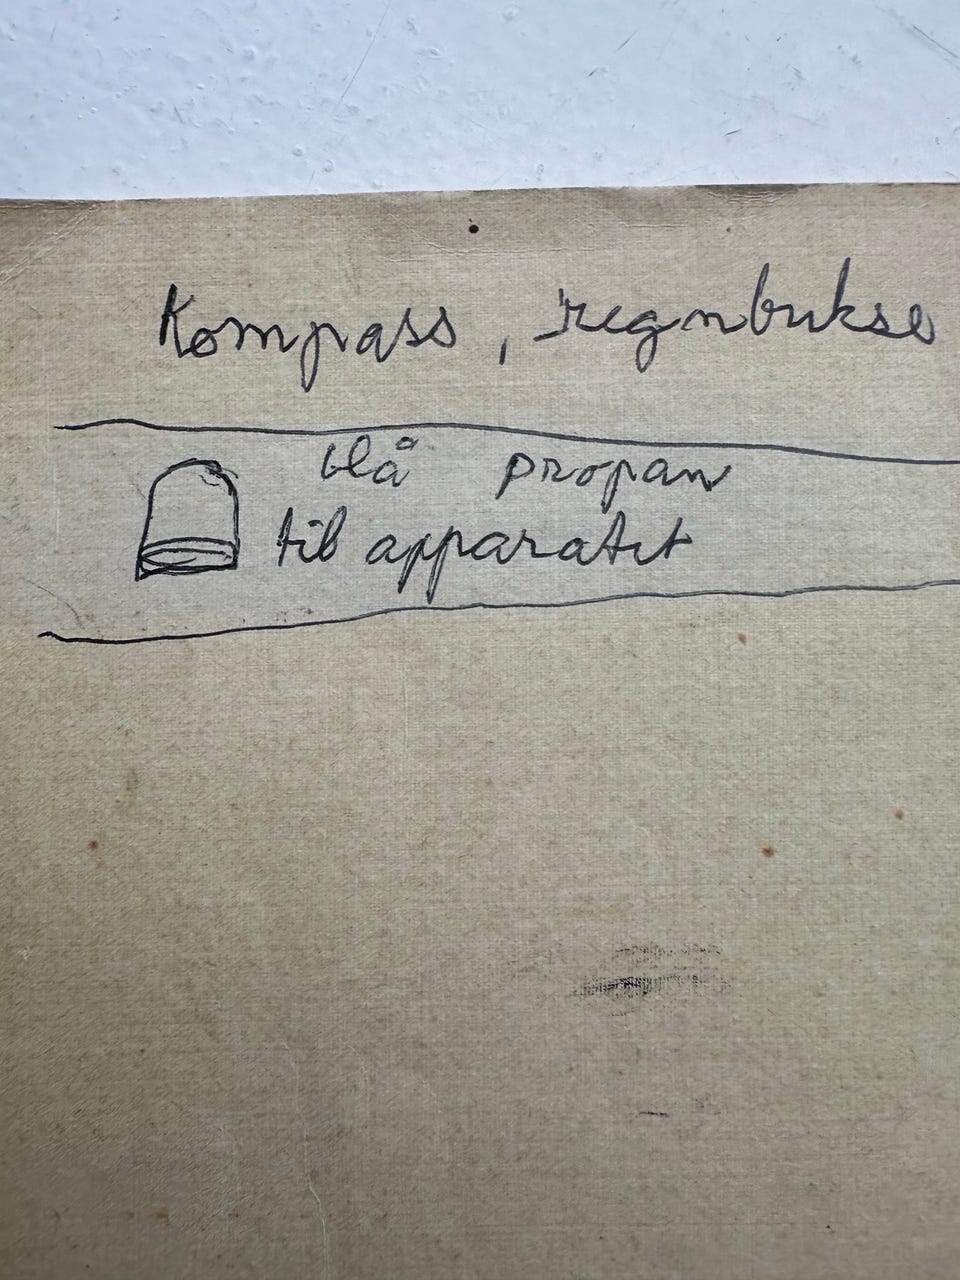 Kompass, regnbukse
blå propan
til apparatet